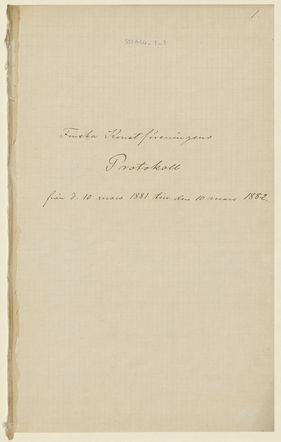 1
Finska Konstföreningens
Protokoll
från d. 10 mars 1881 till den 10 mars 1882